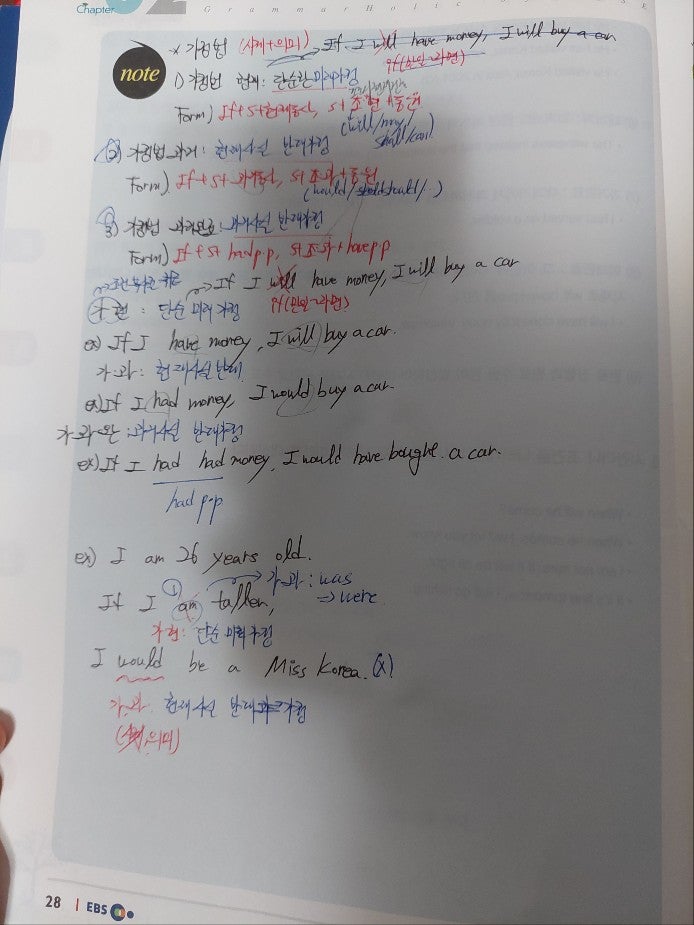 Chapter 02 Grammar Holic
note
* 가정법 (시제+의미) → If I will have money, I will buy a car
if(만일~라면)
1) 가정법 현재: 단순한 미래가정
Form) If+S+현재동사, S+조현+동원
(will/may/
shall/can)
2) 가정법 과거: 현재사실 반대가정
Form) If+S+과거동사, S+조과+동원
(would/should/could/..)
3) 가정법 과거완료: 과거사실 반대가정
Form) If+S+had p.p, S+조과+have p.p
→ If I will have money, I will buy a car
가현: 단순 미래 가정 if(만일~라면)
ex) If I have money, I will buy a car.
가·과: 현재사실 반대.
ex) If I had money, I would buy a car.
가·과·완: 과거사실 반대가정
ex) If I had had money, I would have bought a car.
had p.p
ex) I am 26 years old.
If I am taller, → 가·과: was
⇒ were
가현: 단순 미래가정
I would be a Miss Korea. (X)
가·과: 현재사실 반대 가정
(시제,의미)
28 | EBS